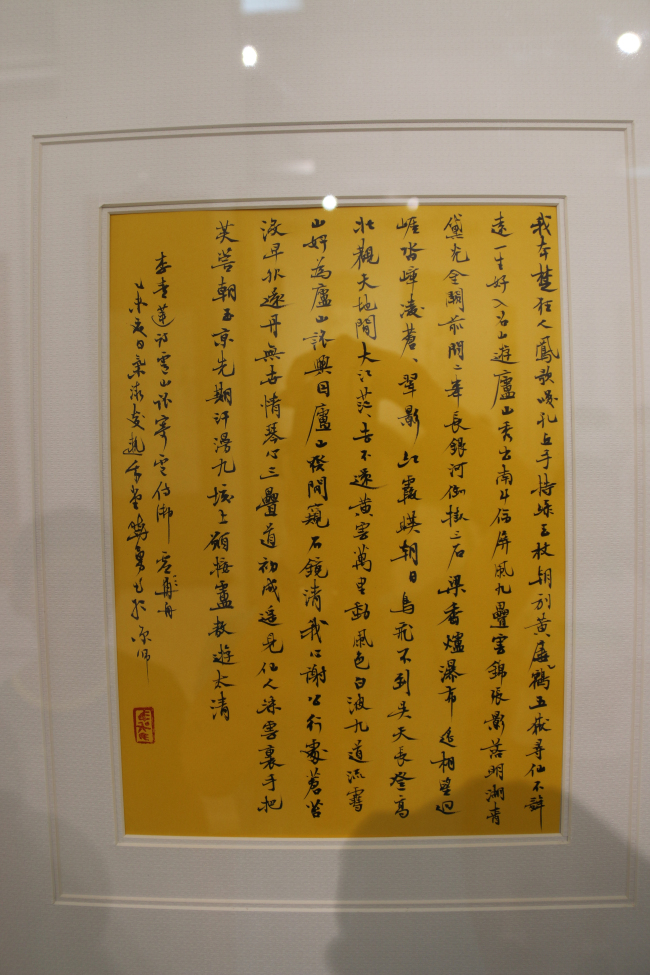 我本楚狂人鳳歌笑孔丘手持綠玉杖朝別黃鶴五嶽尋仙不辭
遠一生好入名山遊廬山秀出南斗傍屏風九疊雲錦張影落明湖青
黛光金闕前開二峯長銀河倒掛三石梁香爐瀑布遙相望迴
崖沓嶂凌蒼蒼翠影紅霞映朝日鳥飛不到吳天長登高
壯觀天地間大江茫茫去不還黃雲萬里動風色白波九道流雪
山好為廬山謠興因廬山發閒窺石鏡清我心謝公行處蒼苔
沒早服還丹無世情琴心三疊道初成遙見仙人綵雲裏手把
芙蓉朝玉京先期汗漫九垓上願接盧敖遊太清
李青蓮詩廬山謠寄盧侍御虛舟
乙未